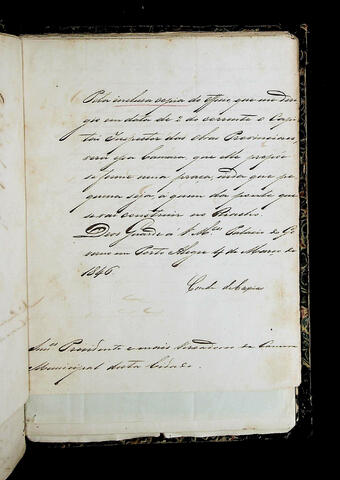 Pela inclusa copia do officio que me diri-
gio em data de 2 do corrente o Capi-
tão Inspector das obras Provinciaes,
verá essa Camara, que elle propõe
se forme uma praça, inda que pe-
quena seja, a quem da ponte que
se vai construir no Riacho.
Deos Guarde á V. Mces. Palacio do Go-
verno em Porto Alegre 4 de Março de
1846.
Conde de Caxias
Snres. Presidente e mais Vereadores da Camara
Municipal desta Cidade.